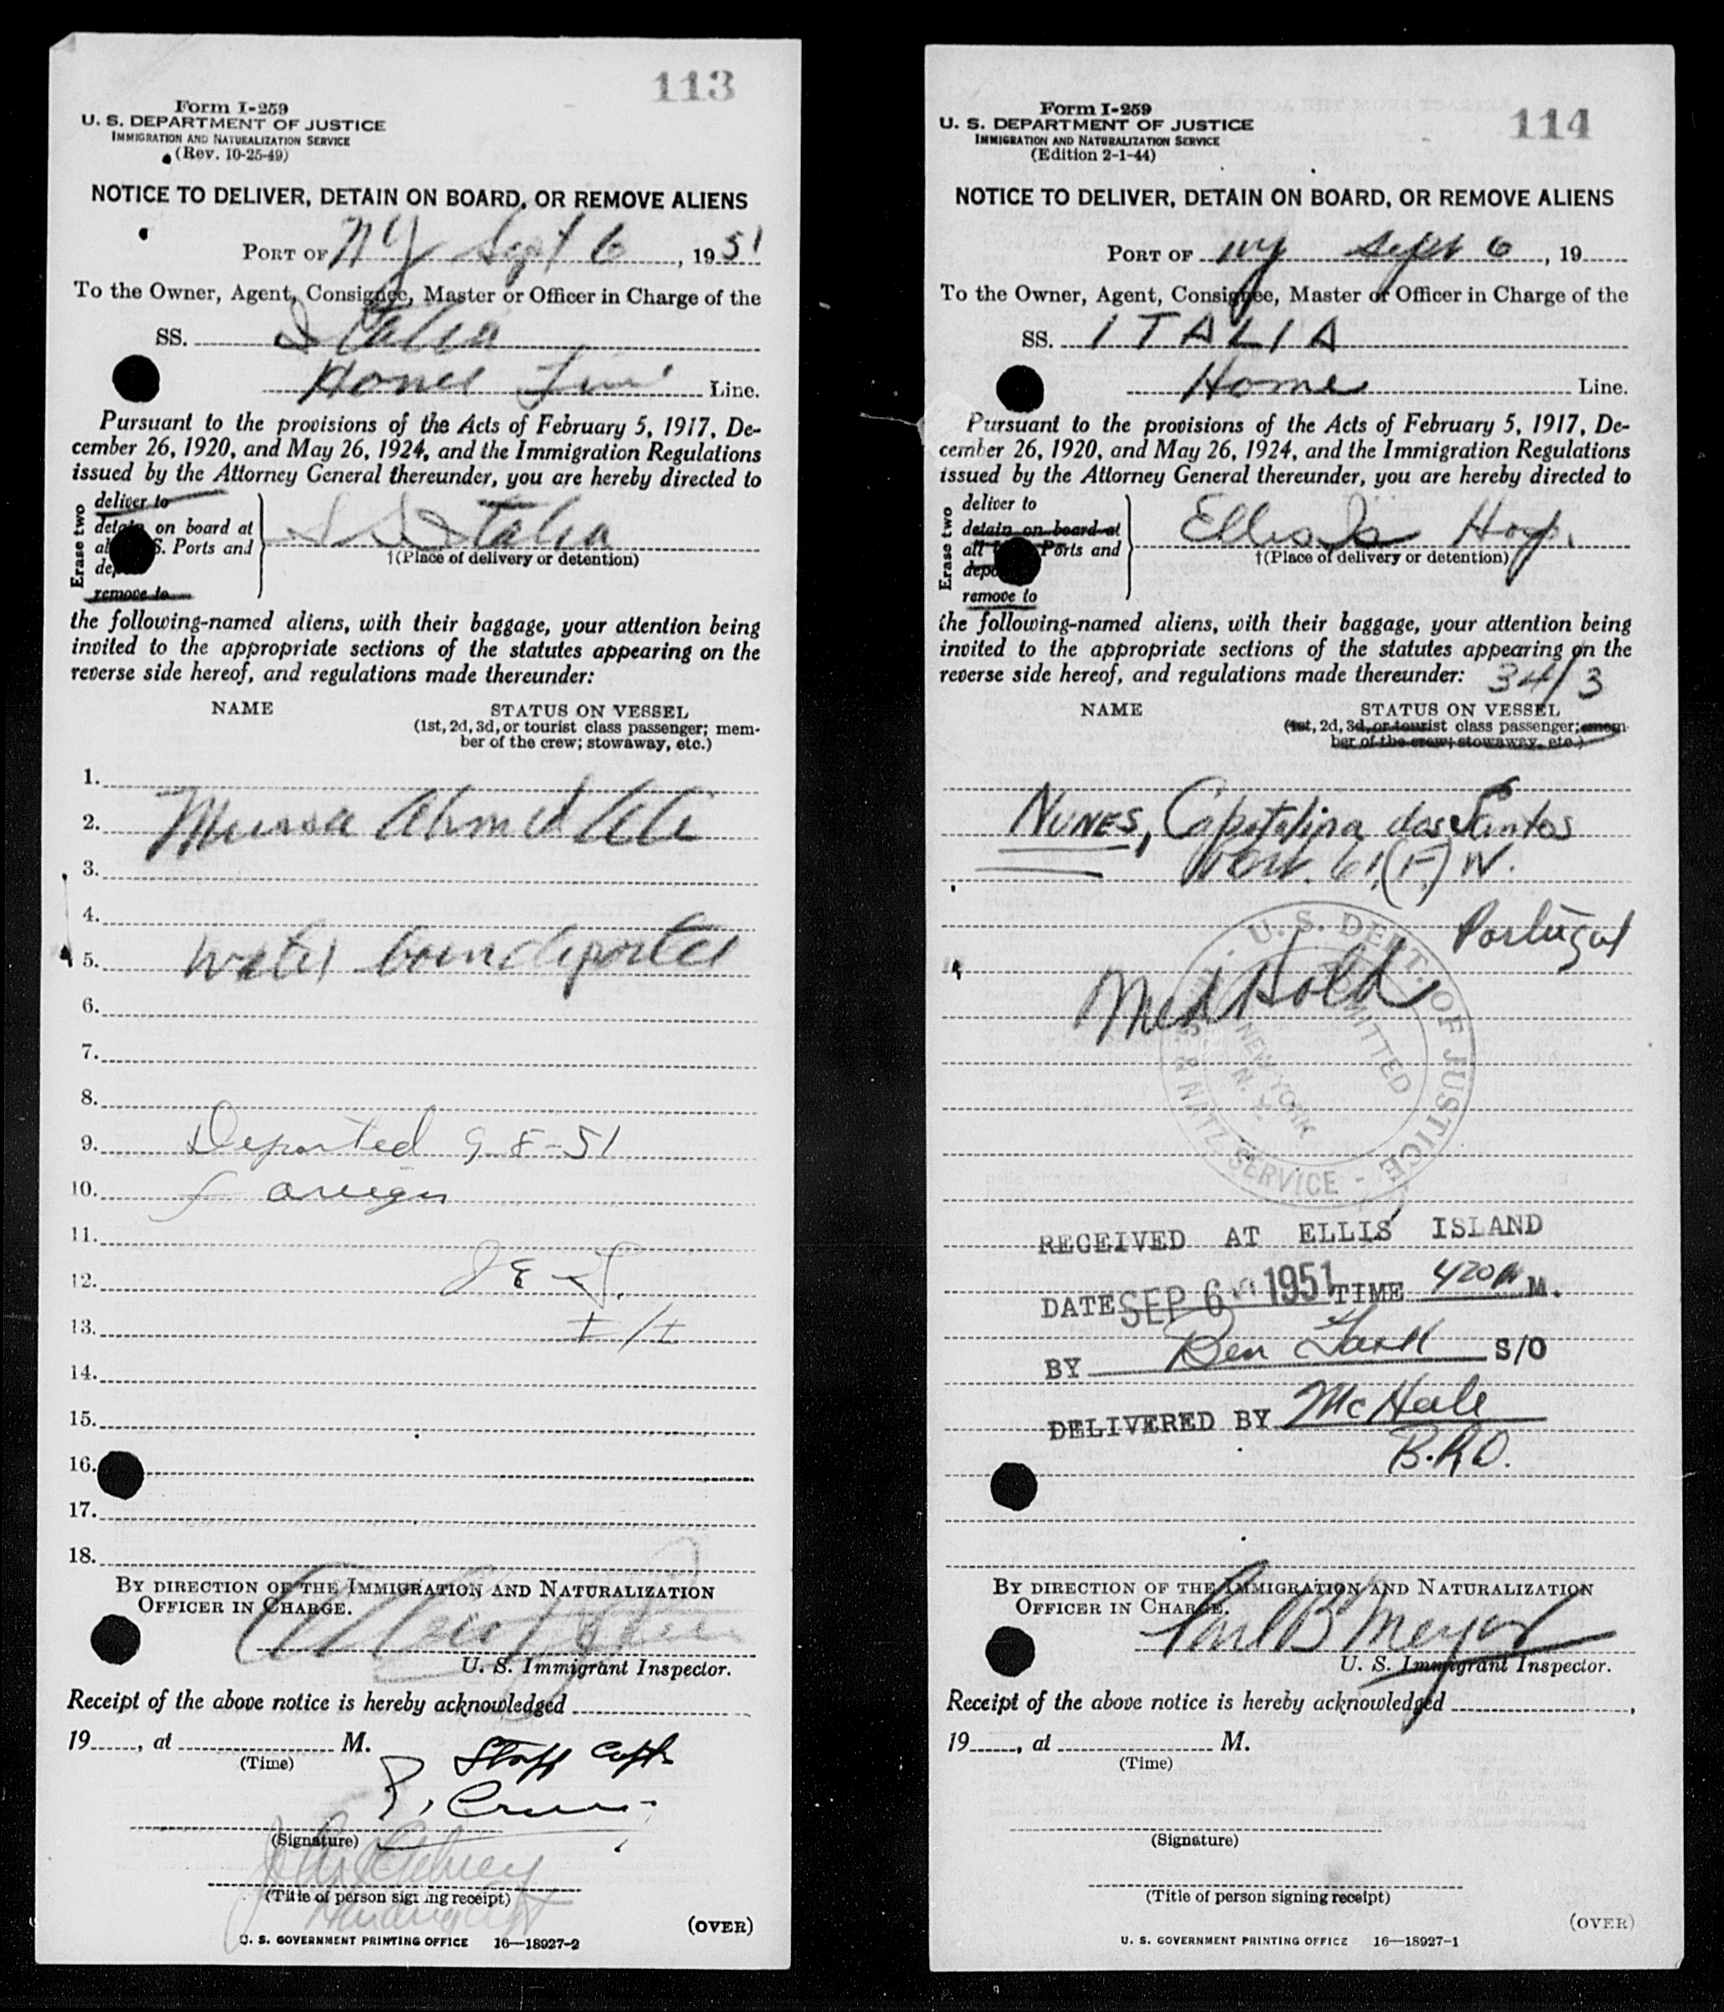 113
Form I-259
U. S. DEPARTMENT OF JUSTICE
IMMIGRATION AND NATURALIZATION SERVICE
(Rev. 10-25-49)
NOTICE TO DELIVER, DETAIN ON BOARD, OR REMOVE ALIENS
PORT OF NY Sept 6, 1951
To the Owner, Agent, Consignee, Master or Officer in Charge of the
SS. Italia
Home Line Line.
Pursuant to the provisions of the Acts of February 5, 1917, De-
cember 26, 1920, and May 26, 1924, and the Immigration Regulations
issued by the Attorney General thereunder, you are hereby directed to
Erase two
deliver to
detain on board at
all S. Ports and
remove to
SS Italia
†(Place of delivery or detention)
the following-named aliens, with their baggage, your attention being
invited to the appropriate sections of the statutes appearing on the
reverse side hereof, and regulations made thereunder:
NAME STATUS ON VESSEL
(1st, 2d, 3d, or tourist class passenger; mem-
ber of the crew; stowaway, etc.)
1.
2. Mussa Ahmed Ali
3.
4.
5. deportee
6.
7.
8.
9. Deported 9-8-51
10. foreign
11.
12.
13.
14.
15.
16.
17.
18.
BY DIRECTION OF THE IMMIGRATION AND NATURALIZATION
OFFICER IN CHARGE.
U. S. Immigrant Inspector.
Receipt of the above notice is hereby acknowledged
19, at M.
(Time)
Staff Capt.
(Signature)
(Title of person signing receipt)
(OVER)
U. S. GOVERNMENT PRINTING OFFICE 16—18927-2
114
Form I-259
U. S. DEPARTMENT OF JUSTICE
IMMIGRATION AND NATURALIZATION SERVICE
(Edition 2-1-44)
NOTICE TO DELIVER, DETAIN ON BOARD, OR REMOVE ALIENS
PORT OF NY Sept 6, 19
To the Owner, Agent, Consignee, Master or Officer in Charge of the
SS. ITALIA
Home Line.
Pursuant to the provisions of the Acts of February 5, 1917, De-
cember 26, 1920, and May 26, 1924, and the Immigration Regulations
issued by the Attorney General thereunder, you are hereby directed to
Erase two
deliver to
detain on board at
all Ports and
remove to
Ellis Is Hosp.
†(Place of delivery or detention)
the following-named aliens, with their baggage, your attention being
invited to the appropriate sections of the statutes appearing on the
reverse side hereof, and regulations made thereunder: 34/3
NAME STATUS ON VESSEL
(1st, 2d, 3d, or tourist class passenger; mem-
ber of the crew; stowaway, etc.)
NUNES, Capitolina dos Santos
61, (F) W.
Portugal
Med Hold
U. S. DEPT. OF JUSTICE
& NATZ. SERVICE
ADMITTED
NEW YORK
N. Y.
RECEIVED AT ELLIS ISLAND
DATE SEP 6 1951 TIME 420 P M.
BY Ben S/O
DELIVERED BY McHale
B.R.O.
BY DIRECTION OF THE IMMIGRATION AND NATURALIZATION
OFFICER IN CHARGE.
Carl B Meyer
U. S. Immigrant Inspector.
Receipt of the above notice is hereby acknowledged
19, at M.
(Time)
(Signature)
(Title of person signing receipt)
(OVER)
U. S. GOVERNMENT PRINTING OFFICE 16—18927-1